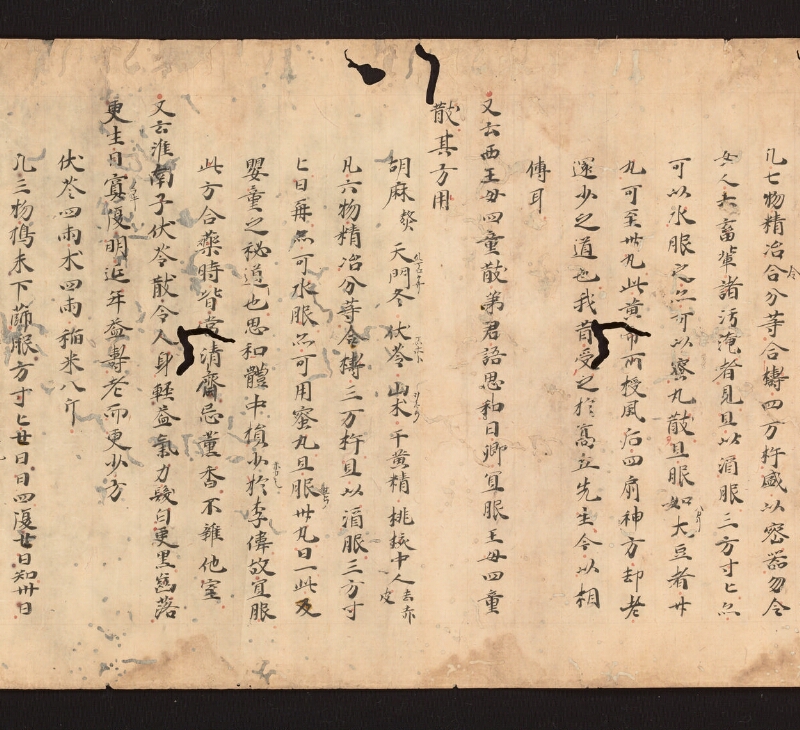 凡七物精冶合分等合擣四万杵盛以密器勿令
女人六畜輩諸汚淹者見旦以酒服三方寸匕亦
可以水服之亦可以蜜丸散旦服如大豆者卅
丸可至卌丸此黄帝所授風后四扇神方却老
還少之道也我昔受之於高丘先生令以相
傳耳
又云西王母四童散第君語思和曰卿宜服王母四童
散其方用
胡麻 天門冬 伏苓 山朮 干黄精 桃核中人去赤皮
凡六物精冶分等合擣三万杵旦以酒服三方寸
匕日再亦可水服亦可用蜜丸旦服卅丸日一此反
嬰童之秘道也思和體中損少於李偉故宜服
此方合藥時皆當清齋忌薫香不雜他室
又云淮南子伏苓散令人身輕益氣力髮白更黒落
更生目冥復明延年益壽老而更少方
伏苓四兩朮四兩稲米八斤
凡三物擣末下篩服方寸匕廿日日四復廿日知卅日